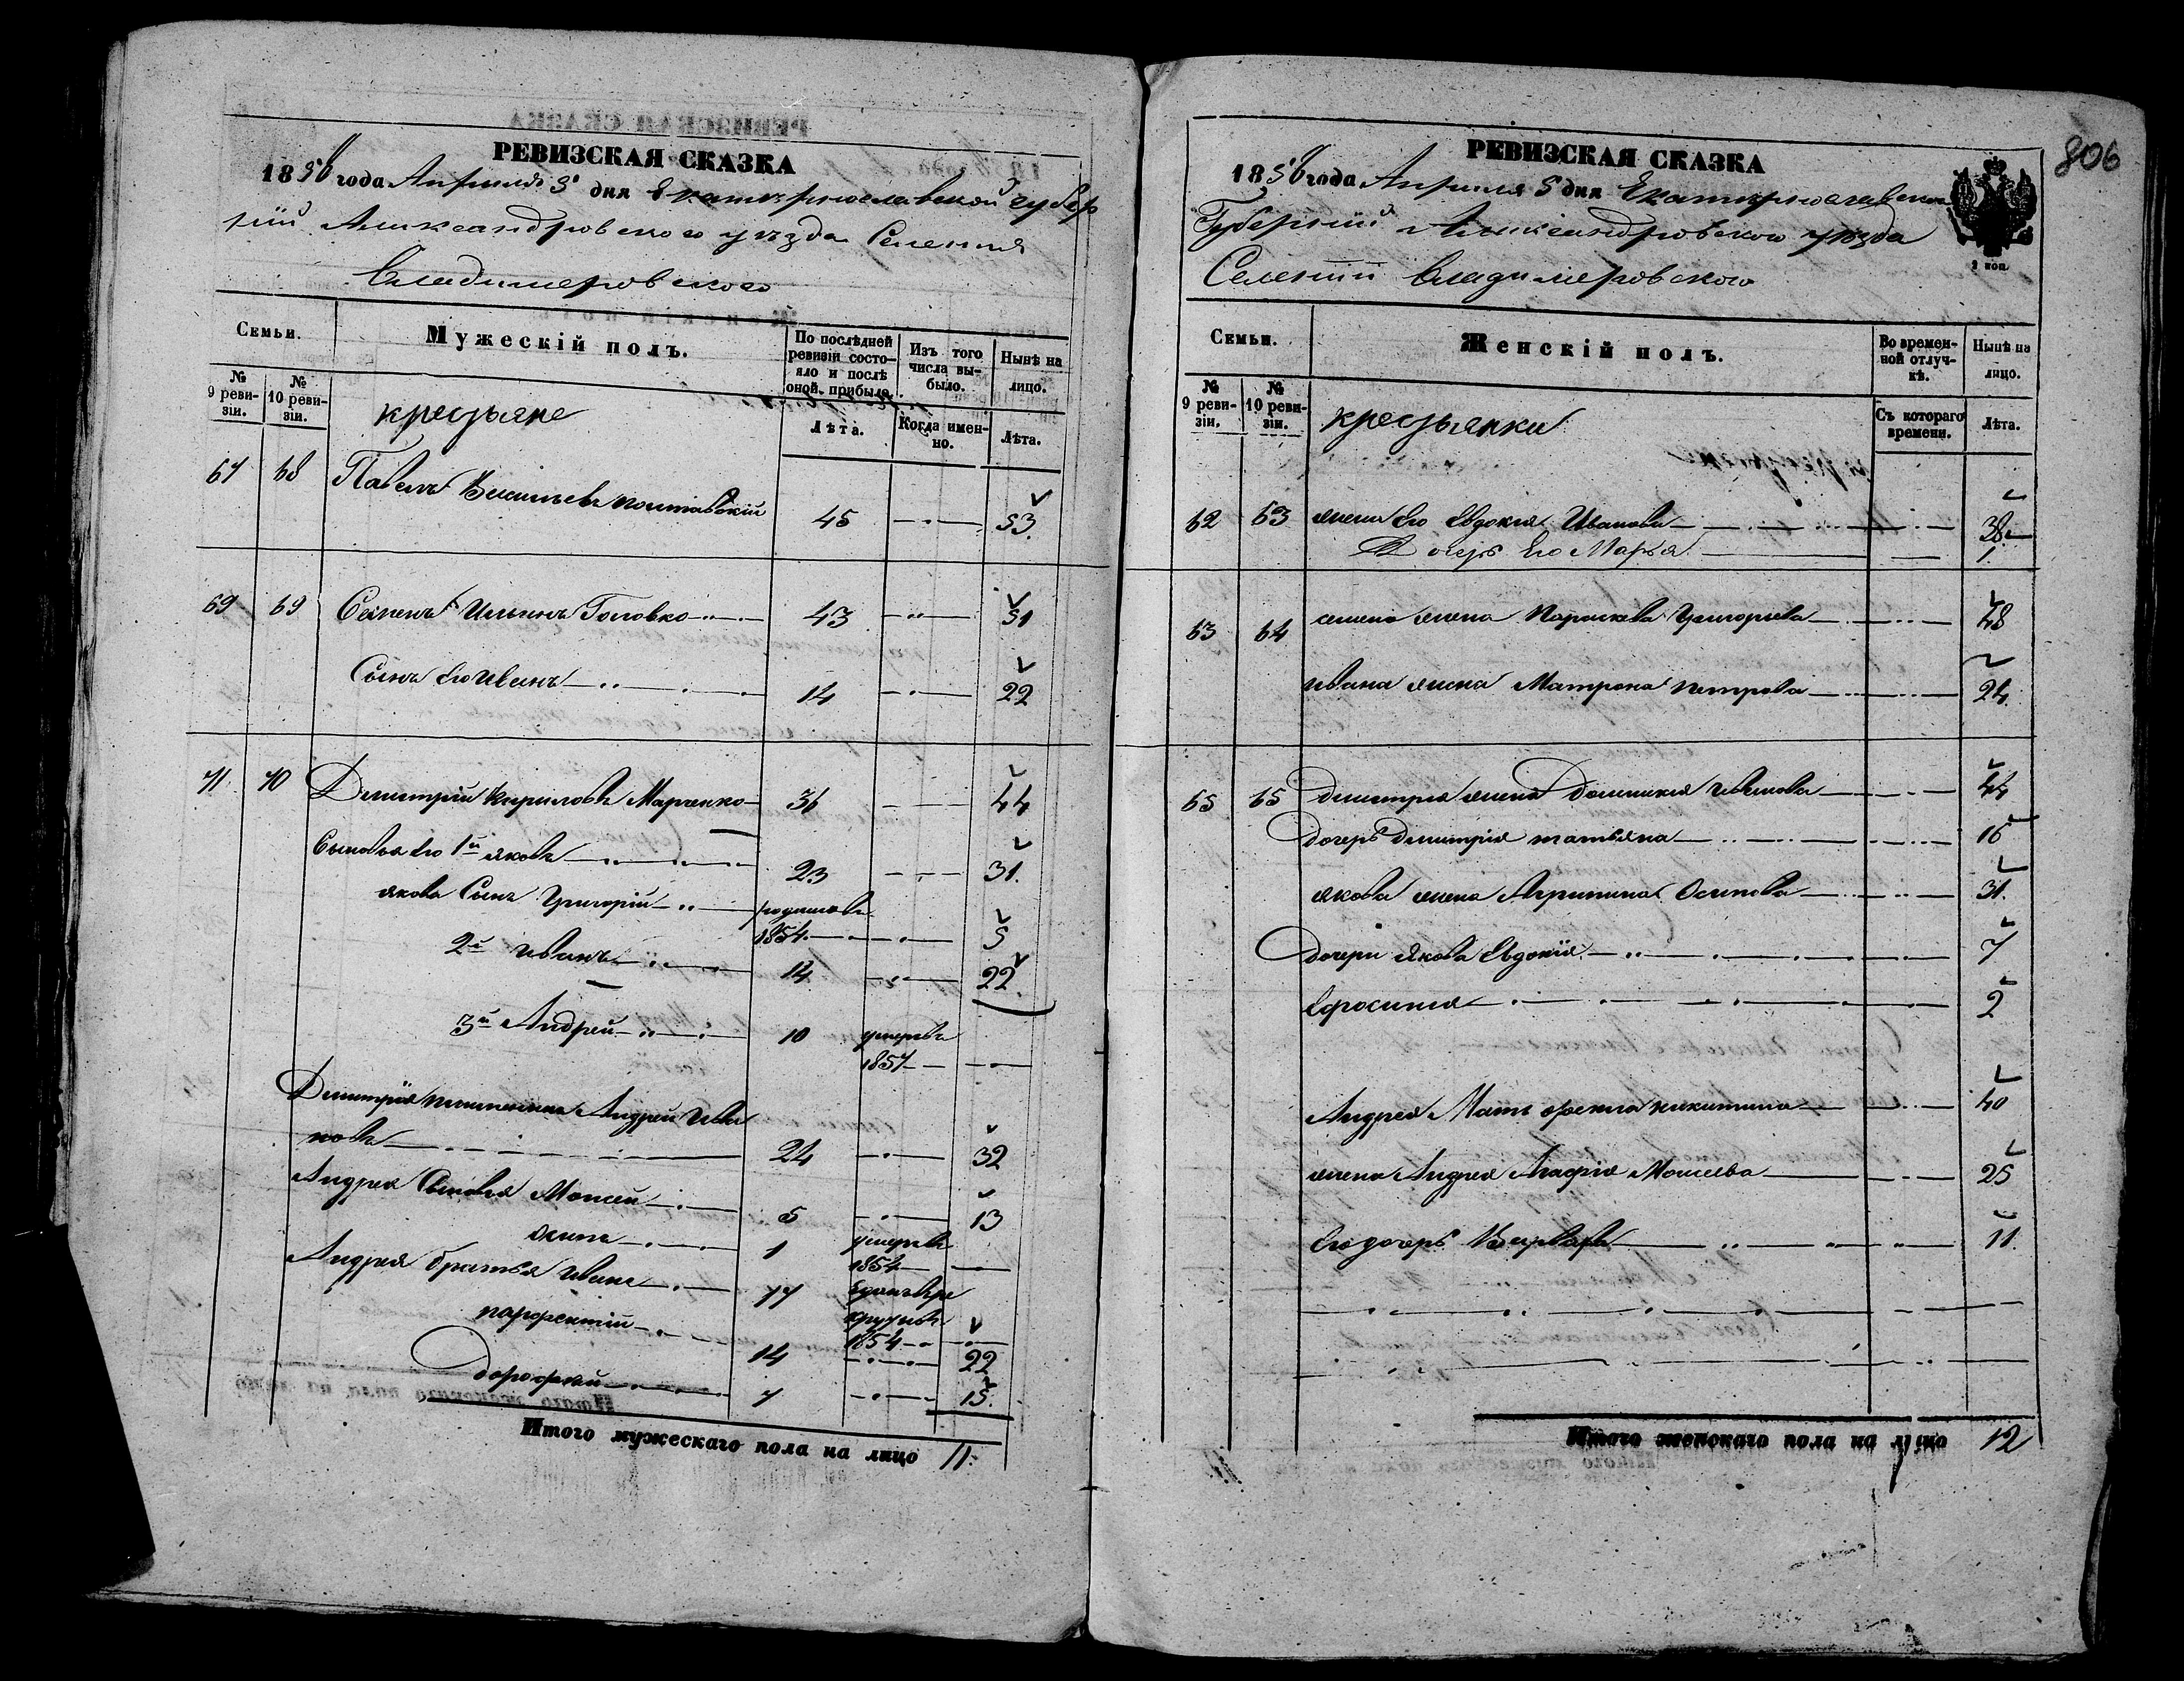 806
РЕВИЗСКАЯ СКАЗКА
1858 года Апреля 5 дня Екатеринославской губер
ніи Александровского уезда Селения
Владимеровского
Семьи.
Мужескій полъ.
По послѣдней ревизіи состо-яло и послѣ оной прибыло.
Изъ того числа вы-было.
Нынѣ на лицо.
№ 9 реви-зіи.
№ 10 реви-зіи.
крестьяне
Лѣта.
Когда имен-но.
Лѣта.
67 68 Павелъ Васильевъ 45 53.
69 69 Семенъ Ильинъ Головко 43 51
Сынъ его Иванъ 14 22
71 70 Димитрій Кириловъ Марченко 36 44
Сыновья его 1й Яковъ 23 31.
Якова Сынъ Григорій родился 1854 5
2й Иванъ 14 22.
3й Андрей 10 умеръ 1857
Димитрія племянникъ Андрей Ива
новъ 24 32
Андрея Сыновья Моисей 5 13
Осипъ 1 умеръ 1854
Андрея братья Иванъ 17 1854
парфентій 14 22
дорофей 7 15.
Итого мужескаго пола на лицо 11.
РЕВИЗСКАЯ СКАЗКА
1858 года Апреля 5 дня Екатеринославской
Губерніи Александровского уезда
Селеніи Владимеровского
2 коп.
Семьи.
Женскій полъ.
Во времен-ной отлуч-кѣ.
Нынѣ на лицо.
№ 9 реви-зіи.
№ 10 реви-зіи.
крестьянки
Съ котораго времени.
Лѣта.
62 63 жена Его Евдокия Иванова 38
Дочерь Его Марья 1.
63 64 семена жена Параскева Григорьева 48
ивана жена Матрона петрова 24
65 65 димитрия жена Домникия
44
дочерь димитрія татьяна 16
якова жена Агрипина Осипова 31.
дочери Якова Евдокія 7
Ефросиния 2
Андрея Мать фекла никитина 40
жена Андрея Агафія Моисеева 25
Его дочерь Варвара 11.
Итого женскаго пола на лицо 12